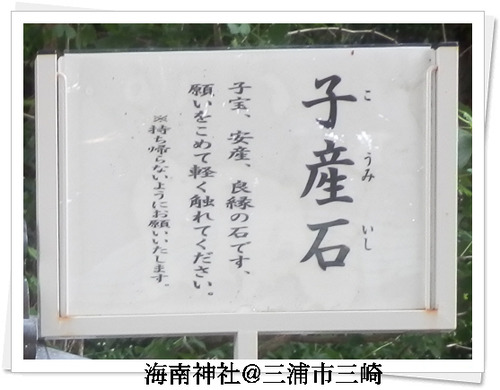 子産石
こうみいし
子宝、安産、良縁の石です、
願いをこめて軽く触れてください。
※持ち帰らないようにお願いいたします。
海南神社@三浦市三崎